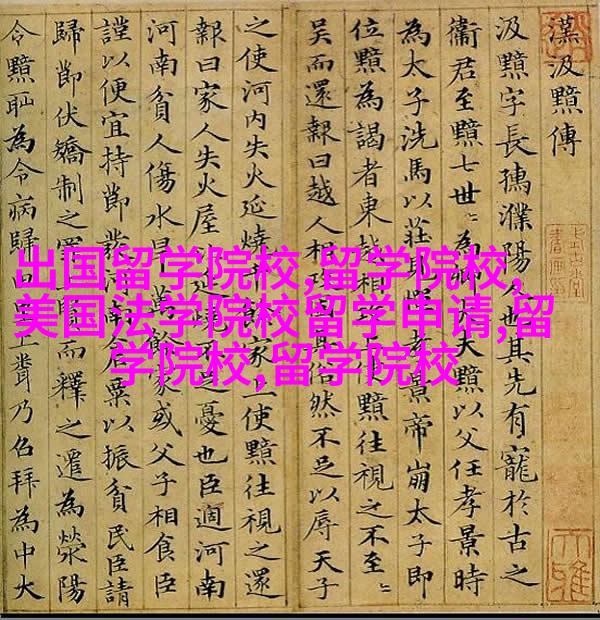 漢汲黯傳
汲黯字長孺濮陽也其先有寵於古之
衛君至黯七世〻為夫黯以父任孝景時
為太子洗馬以莊見憚孝景帝崩太子即
位黯為謁者東越相黯往視之不至〻
吴而還報曰越人相攻其俗然不足以辱天子
之使河内失火延燒家上使黯往視之還
報曰家人失火屋延不足憂也臣適河南
河南貧人傷水旱萬餘家或父子相食臣
謹以便宜持節發河南倉粟以振貧民臣請
歸節伏矯制之罪而釋之遷為滎陽
令黯恥為令病歸田上賢乃召拜為中大
出国留学院校,留学院校,
美国法学院校留学申请,留
学院校,留学院校